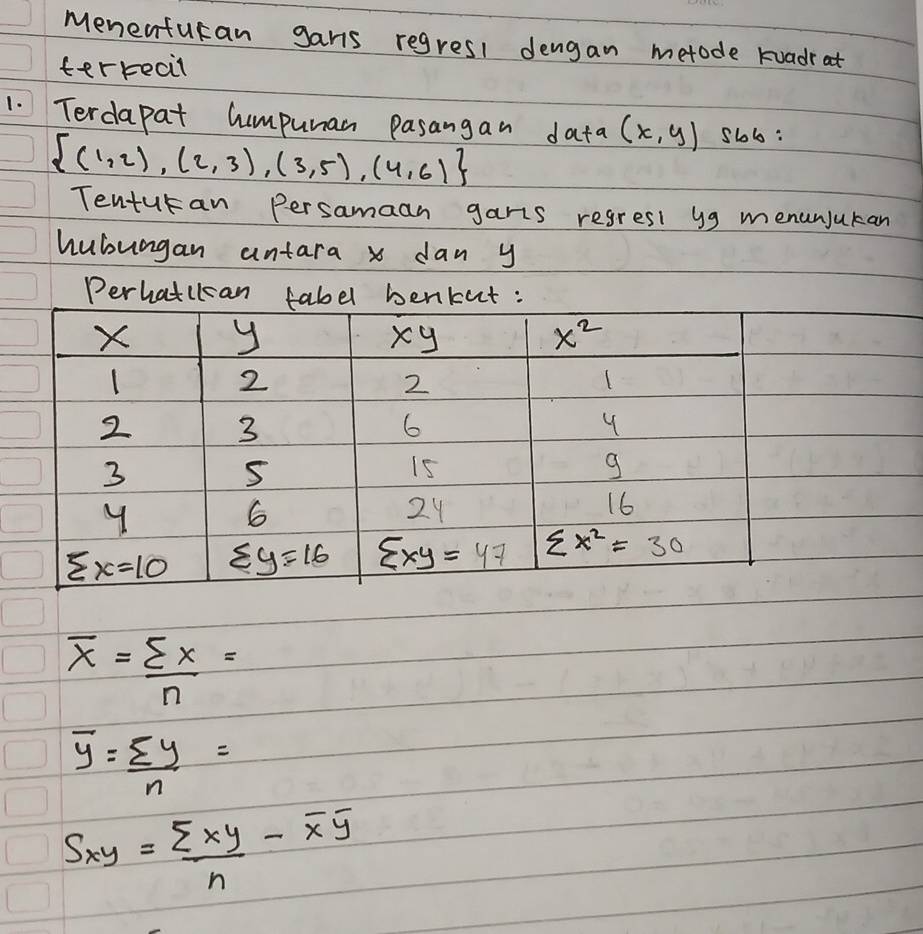 Menentukan garis regresi dengan metode kuadrat
terkecil
1. Terdapat himpunan pasangan data (x, y) sbb:
{(1,2), (2,3), (3,5), (4,6)}
Tentukan Persamaan garis regresi yg menunjukan
hubungan antara x dan y
Perhatikan tabel berikut:
x y xy x²
1 2 2 1
2 3 6 4
3 5 15 9
4 6 24 16
Σx=10 Σy=16 Σxy = 47 Σx² = 30
x̄ = Σx/n =
ȳ = Σy/n =
Sxy = Σxy/n - x̄ȳ